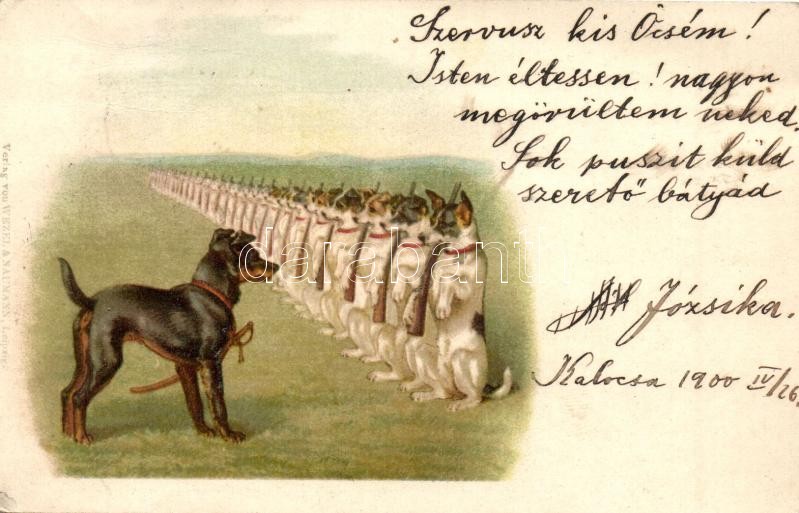 Szervusz kis Öcsém!
Isten éltessen! nagyon
megörültem neked.
Sok puszit küld
szerető bátyád
Józsika.
Kalocsa 1900 IV/26.
Verlag von WEZEL & NAUMANN, Leipzig.
darabanth